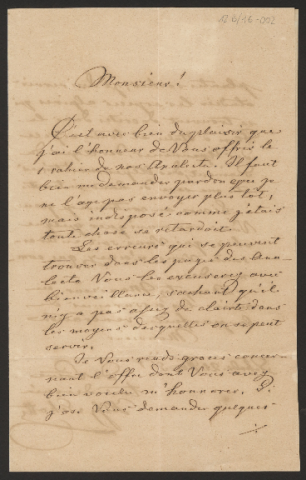 12 R/16-002
Monsieur!
C'est avec bien du plaisir que
j'ai l'honneur de Vous offrir le
1 cahier de nos Analecta. Il faut
bien me demander pardon que je
ne l'aye pas envoyer plus tôt,
mais indisposé comme j'étais
toute chose se retardait.
Les erreurs qui se peuvent
trouver dans les pages des Ana-
lecta Vous les excuserez avec
bienveillance, sachant qu'il
n'y a pas assez de clarté dans
les moyens desquelles on se peut
servir.
Je Vous rends graces concer-
nant l'offre dont Vous avez
bien voulu m'honnorer. Si
j'ose Vous demander quelques